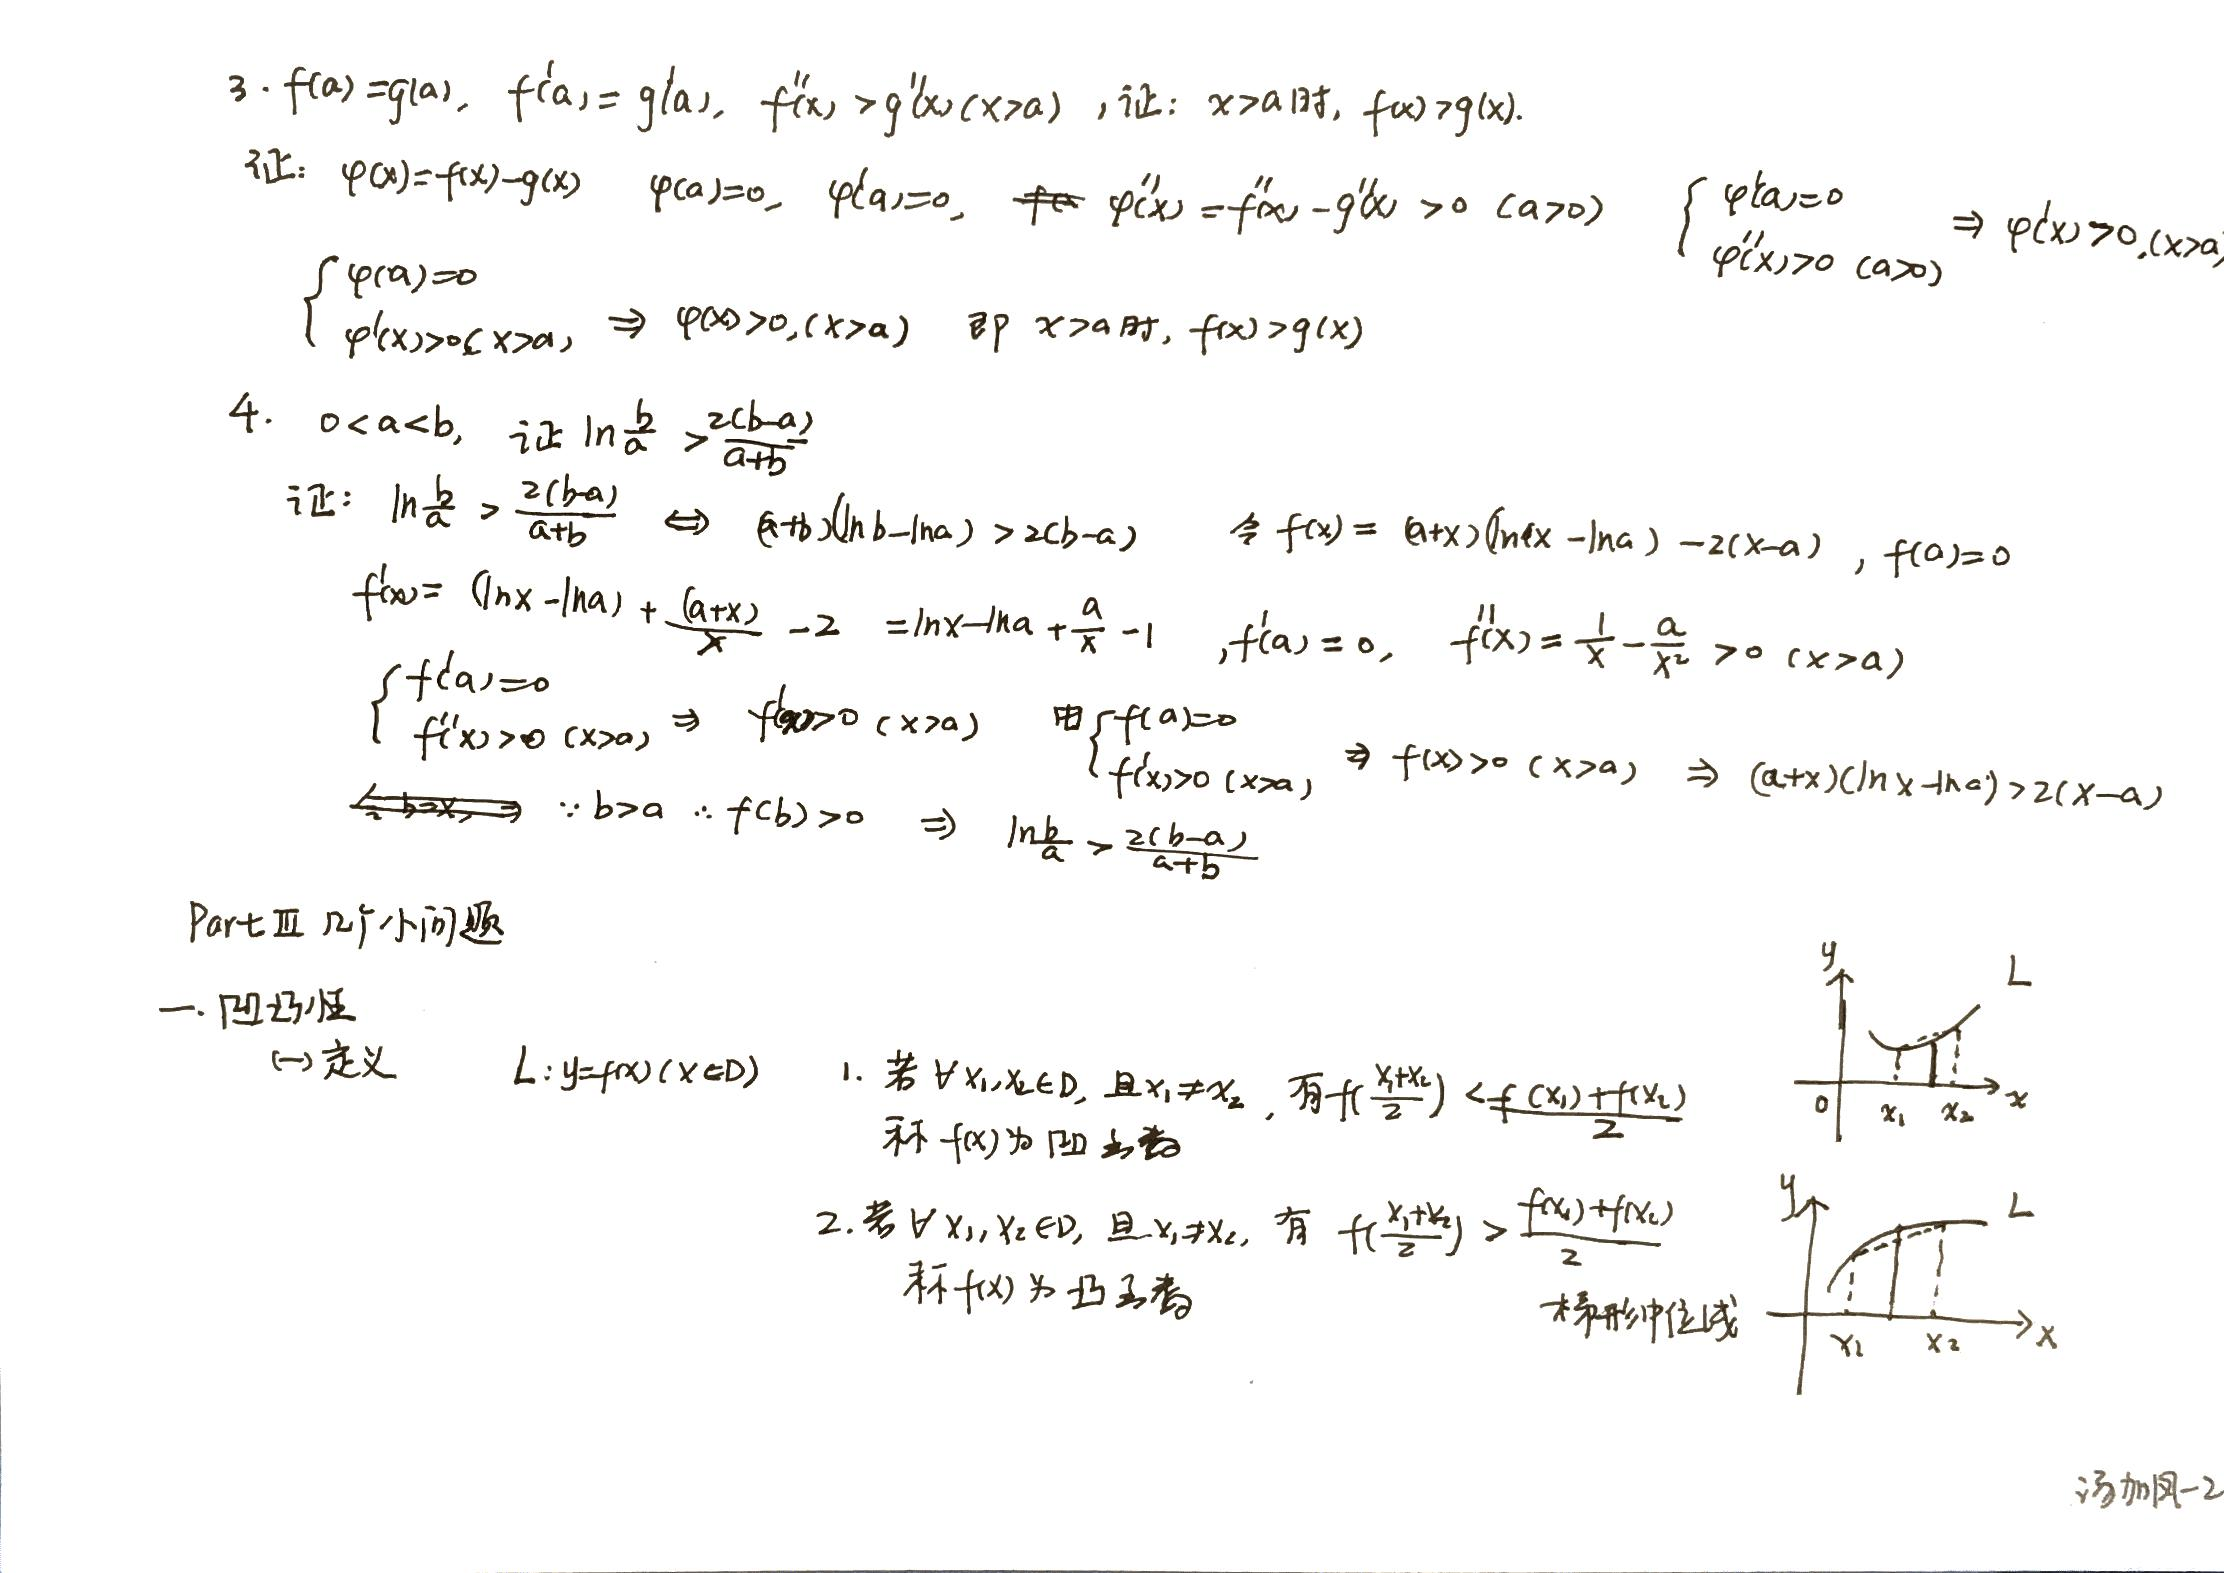 3. f(a)=g(a), f'(a)=g'(a), f''(x)>g''(x) (x>a), 证: x>a时, f(x)>g(x).
证: φ(x)=f(x)-g(x) φ(a)=0, φ'(a)=0, φ''(x)=f''(x)-g''(x)>0 (a>0) { φ'(a)=0 φ''(x)>0 (a>0) ⇒ φ'(x)>0, (x>a)
{ φ(a)=0 φ'(x)>0 (x>a) ⇒ φ(x)>0, (x>a) 即 x>a时, f(x)>g(x)
4. 0<a<b, 证 ln b/a > 2(b-a)/(a+b)
证: ln b/a > 2(b-a)/(a+b) ⇔ (a+b)(lnb-lna)>2(b-a) 令 f(x)=(a+x)(lnx-lna)-2(x-a), f(a)=0
f'(x)=(lnx-lna)+(a+x)/x-2 =lnx-lna+a/x-1, f'(a)=0, f''(x)=1/x-a/x²>0 (x>a)
{ f'(a)=0 f''(x)>0 (x>a) ⇒ f'(x)>0 (x>a) 由{ f(a)=0 f'(x)>0 (x>a) ⇒ f(x)>0 (x>a) ⇒ (a+x)(lnx-lna)>2(x-a)
∵ b>a ∴ f(b)>0 ⇒ ln b/a > 2(b-a)/(a+b)
Part Ⅲ 几个小问题
一. 凹凸性
(一) 定义 L: y=f(x) (x∈D) 1. 若∀x₁,x₂∈D, 且x₁≠x₂, 有f((x₁+x₂)/2)<(f(x₁)+f(x₂))/2
称f(x)为凹函数
2. 若∀x₁,x₂∈D, 且x₁≠x₂, 有 f((x₁+x₂)/2)>(f(x₁)+f(x₂))/2
称f(x)为凸函数
梯形中位线
y L
0 x₁ x₂ x
y L
x₁ x₂ x
汤加凤-2